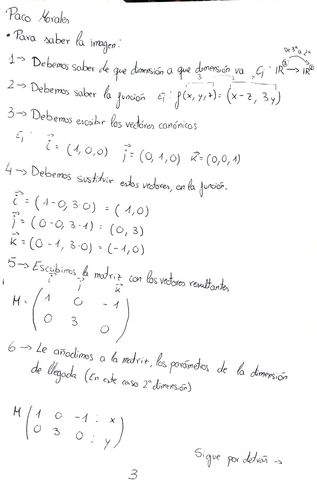 Paco Morales
• Para saber la imagen:
De 3ª a 2ª
1 → Debemos saber de que dimensión a que dimensión va, Ej: ℝ³ → ℝ²
3 2
2 → Debemos saber la función Ej: f(x, y, z) = (x-z, 3y)
3 → Debemos escribir los vectores canónicos
Ej: i = (1,0,0) j = (0,1,0) k = (0,0,1)
4 → Debemos sustituir estos vectores, en la función.
i = (1-0, 3·0) = (1,0)
j = (0-0, 3·1) = (0,3)
k = (0-1, 3·0) = (-1,0)
5 → Escribimos la matriz con los vectores resultantes
i j k
M = ( 1 0 -1
0 3 0 )
6 → Le añadimos a la matriz, los parámetros de la dimensión
de llegada (En este caso 2ª dimensión)
M ( 1 0 -1 : x
0 3 0 : y )
Sigue por detrás →
3